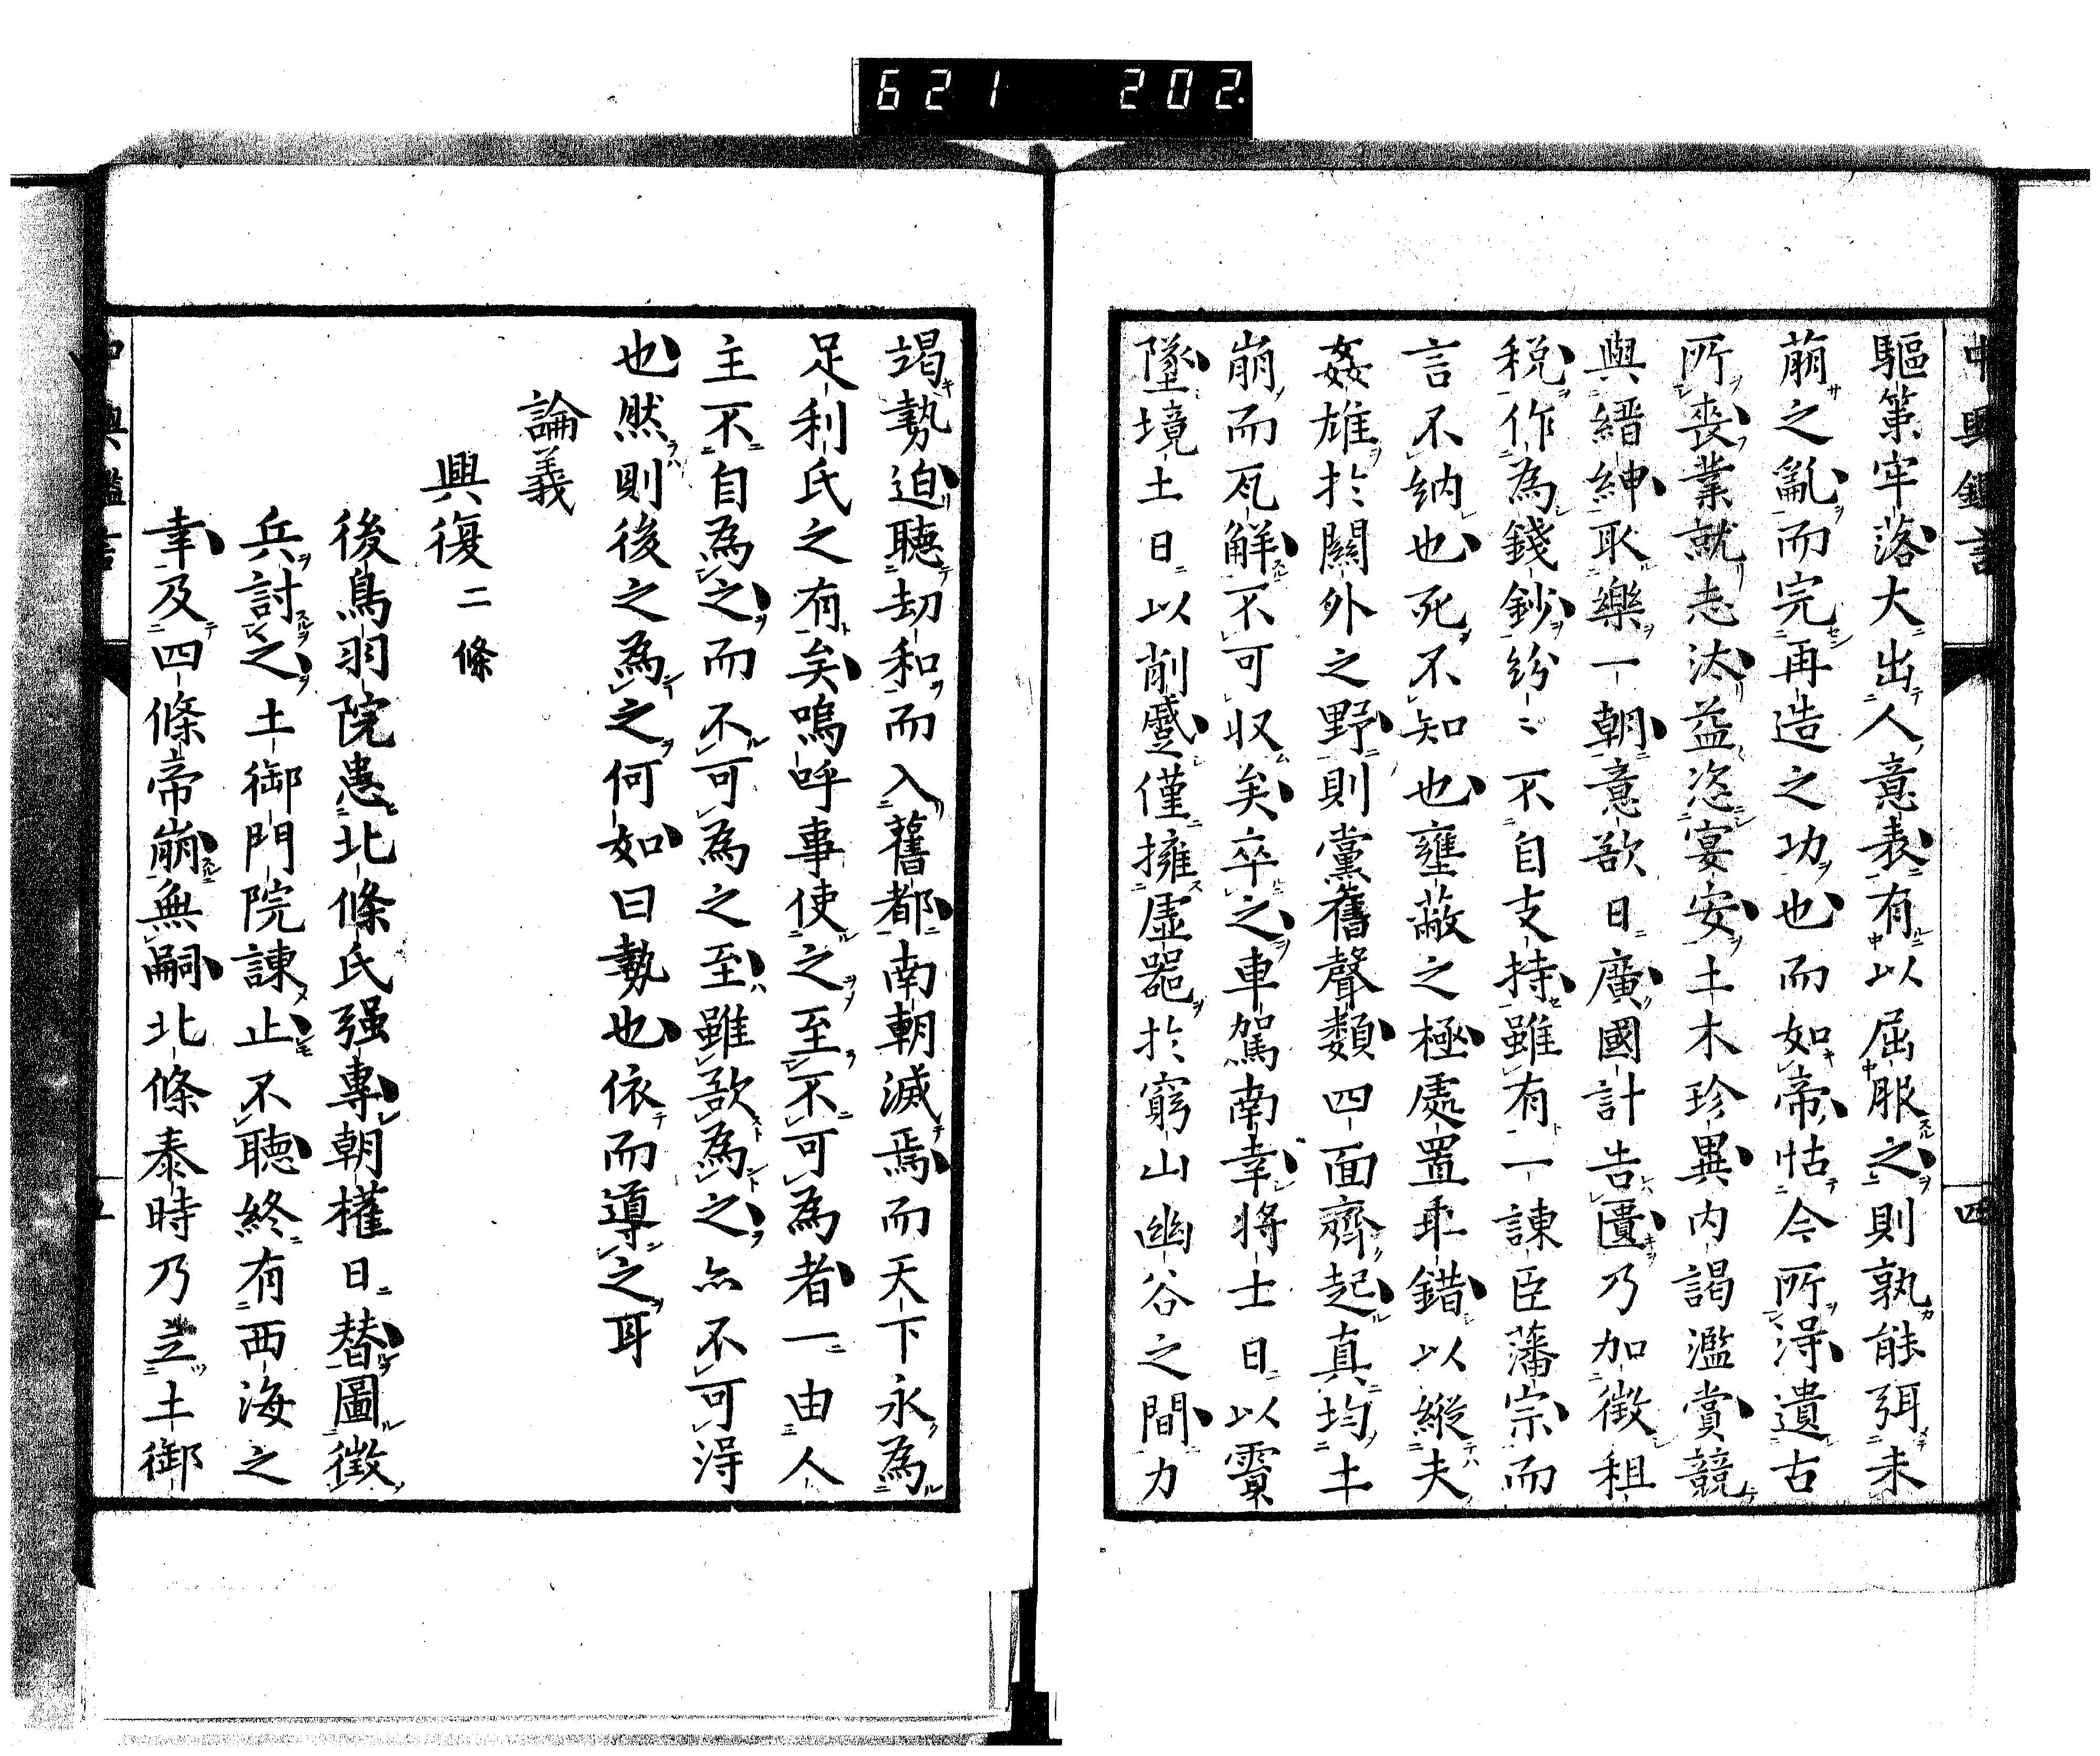 621 202.
中興鑑言
四
驅策牢落大出人意表有以屈服之則孰能弭未
萠之亂而完再造之功也而如帝怙今所得遺古
所喪業就志汰益恣宴安土木珍異內謁濫賞競
與縉紳取樂一朝意欲日廣國計告匱乃加徵租
稅作為錢鈔紛〻不自支持雖有一諫臣藩宗而
言不納也死不知也壅蔽之極處置乖錯以縱夫
姦雄於關外之野則黨舊聲類四面齊起真均土
崩而瓦解不可収矣卒之車駕南幸將士日以霣
墜境土日以削蹙僅擁虛器於窮山幽谷之間力
竭勢迫聽劫和而入舊都南朝滅焉而天下永為
足利氏之有矣嗚呼事使之至不可為者一由人
主不自為之而不可為之至雖欲為之亦不可得
也然則後之為之何如曰勢也依而導之耳
論義
興復二條
後鳥羽院患北條氏强專朝權日替圖徵
兵討之土御門院諫止不聽終有西海之
幸及四條帝崩無嗣北條泰時乃立土御
中興鑑言
五